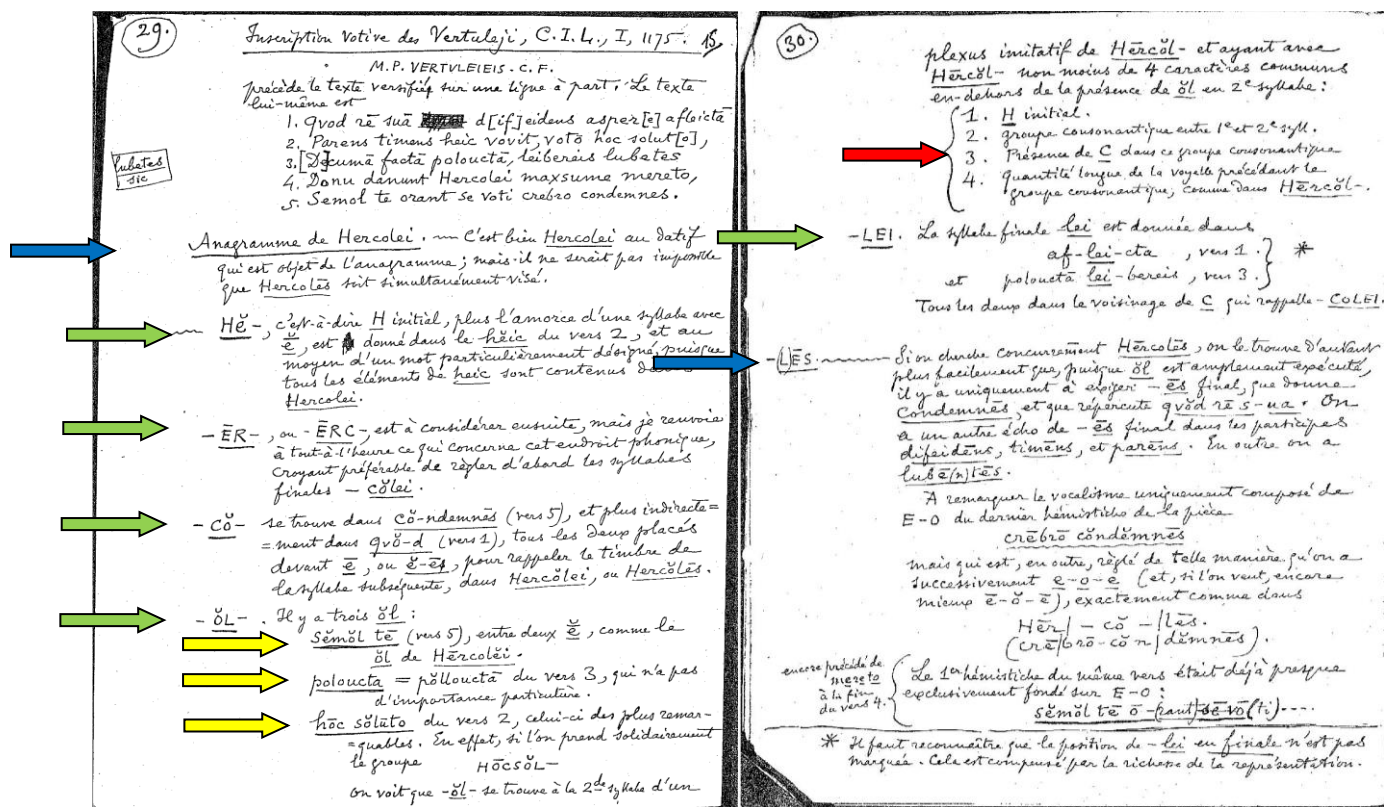 29.
Inscription Votive des Vertuleji, C.I.L., I, 1175. 15
M.P. VERTVLEIEIS. C. F.
précède le texte versifié sur une ligne à part. Le texte
lui-même est
1. Qvod rē suā d[if]eidens asper[e] afleictā
2. Parens timens heic vovit, votō hoc solut[o],
3. [De]cumā factā polouctā, leibereis lubetes
4. Donu danunt Hercolei maxsume mereto,
5. Semol te orant se voti crebro condemnes.
lubetes
sic
Anagramme de Hercolei. — C'est bien Hercolei au datif
qui est objet de l'anagramme; mais il ne serait pas impossible
que Hercolēs soit simultanément visé.
Hĕ-, c'est-à-dire H initial, plus l'amorce d'une syllabe avec
ĕ, est donné dans le hĕic du vers 2, et au
moyen d'un mot particulièrement désigné, puisque
tous les éléments de heic sont contenus
Hercolei.
-ĒR-, ou -ĒRC-, est à considérer ensuite, mais je renvoie
à tout-à-l'heure ce qui concerne cet endroit phonique,
croyant préférable de règler d'abord les syllabes
finales - cŏlei.
-CŎ- se trouve dans cŏ-ndemnēs (vers 5), et plus indirecte=
=ment dans qvŏ-d (vers 1), tous les deux placés
devant ē, ou ĕ-ēs, pour rappeler le timbre de
la syllabe subséquente, dans Hercŏlei, ou Hercŏlēs.
-ŎL-. Il y a trois ŏl:
sĕmŏl tē (vers 5), entre deux ĕ, comme le
ŏl de Hērcolĕi.
poloucta = pŏllouctā du vers 3, qui n'a pas
d'importance particulière.
hōc sŏluto du vers 2, celui-ci des plus remar-
=quables. En effet, si l'on prend solidairement
le groupe HŌCSŎL-
on voit que -ŏl- se trouve à la 2de syllabe d'un
30.
plexus imitatif de Hērcŏl- et ayant avec
Hērcŏl- non moins de 4 caractères communs
en-dehors de la présence de ŏl en 2e syllabe:
1. H initial.
2. groupe consonantique entre 1e et 2e syll.
3. Présence de C dans ce groupe consonantique
4. quantité longue de la voyelle précédant le
groupe consonantique, comme dans Hērcŏl-.
-LEI. La syllabe finale lei est donnée dans
af-lei-cta, vers 1.
et poloucta lei-bereis, vers 3. *
Tous les deux dans le voisinage de C qui rappelle -COLEI.
-(L)ĒS. Si on cherche concurremment Hērcŏlēs, on le trouve d'autant
plus facilement que, puisque ŏl est amplement exécuté,
il y a uniquement à exiger -ēs final, que donne
condemnēs, et que répercute qvŏd rē s-ua. On
a un autre écho de -ēs final dans les participes
difeidēns, timēns, et parēns. En outre on a
lubē(n)tēs.
A remarquer le vocalisme uniquement composé de
E-O du dernier hémistiche de la pièce
crēbrō cōndēmnēs
mais qui est, en outre, règlé de telle manière qu'on a
successivement e-o-e (et, si l'on veut, encore
mieux ē-ŏ-ē), exactement comme dans
Hēr|-cŏ-|lēs.
(crē|brō-cōn|dēmnēs).
encore précédé de
mereto
à la fin
du vers 4.
Le 1er hémistiche du même vers était déjà presque
exclusivement fondé sur E-O:
sĕmŏl tē ō-(rant) sē vō(ti)....
* Il faut reconnaître que la position de -lei en finale n'est pas
marquée. Cela est compensé par la richesse de la représentation.